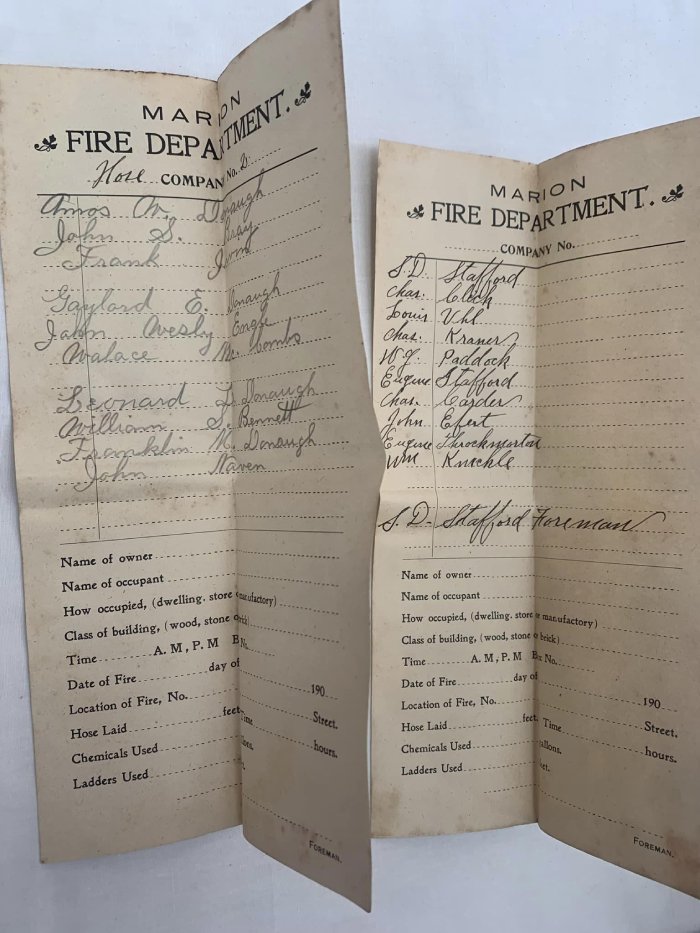 MARION
FIRE DEPARTMENT.
Hose COMPANY No. 2
Amos W. Donaugh
John S. Bray
Frank Irons
Gaylord E. Donaugh
John Wesly Engle
Walace Mc Combs
Leonard L. Donaugh
William S. Bennett
Franklin M. Donaugh
John Haven
Name of owner
Name of occupant
How occupied, (dwelling. store or manufactory)
Class of building, (wood, stone or brick)
Time A. M, P. M Box No.
Date of Fire day of 190
Location of Fire, No. Street.
Hose Laid feet, Time hours.
Chemicals Used gallons.
Ladders Used feet.
FOREMAN.
MARION
FIRE DEPARTMENT.
COMPANY No.
S. D. Stafford
Chas. Clock
Louis Uhl
Chas. Kraner
W. J. Paddock
Eugene Stafford
Chas. Carder
John Efert
Eugene Throckmorton
Wm Knachle
S. D. Stafford Foreman
Name of owner
Name of occupant
How occupied, (dwelling. store or manufactory)
Class of building, (wood, stone or brick)
Time A. M, P. M Box No.
Date of Fire day of 190
Location of Fire, No. Street.
Hose Laid feet. Time hours.
Chemicals Used gallons.
Ladders Used feet.
FOREMAN.